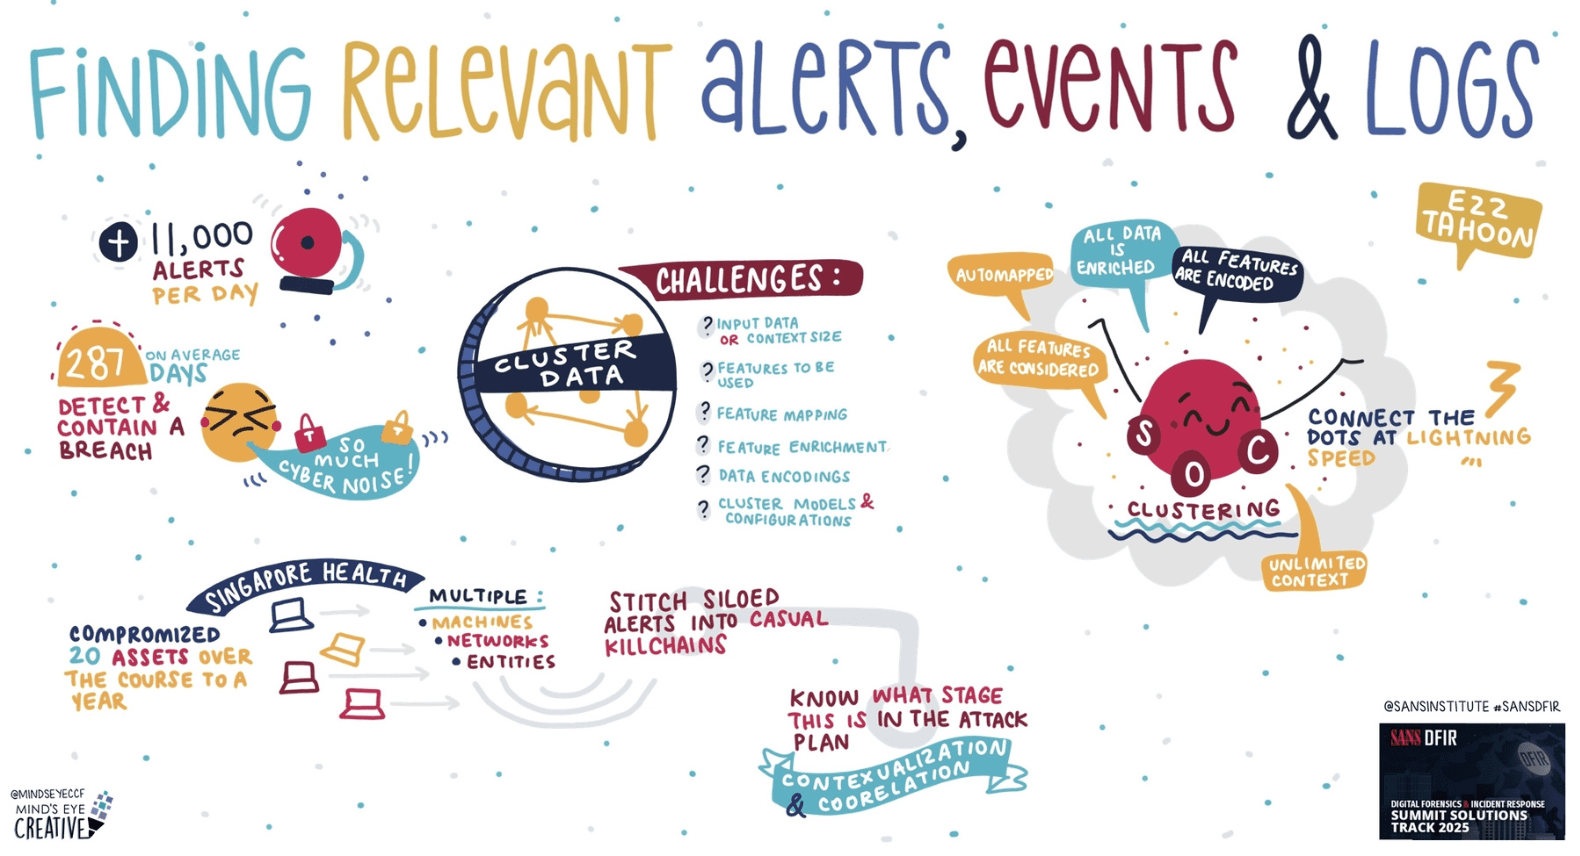 FINDING RELEVANT ALERTS, EVENTS & LOGS
EZZ
TAHOON
+ 11,000
ALERTS
PER DAY
287 ON AVERAGE
DAYS
DETECT &
CONTAIN A
BREACH
SO
MUCH
CYBER NOISE!
T
T
CLUSTER
DATA
CHALLENGES:
? INPUT DATA
OR CONTEXT SIZE
? FEATURES TO BE
USED
? FEATURE MAPPING
? FEATURE ENRICHMENT
? DATA ENCODINGS
? CLUSTER MODELS &
CONFIGURATIONS
AUTOMAPPED
ALL DATA
IS
ENRICHED
ALL FEATURES
ARE ENCODED
ALL FEATURES
ARE CONSIDERED
SOC
CLUSTERING
UNLIMITED
CONTEXT
CONNECT THE
DOTS AT LIGHTNING
SPEED
SINGAPORE HEALTH
COMPROMIZED
20 ASSETS OVER
THE COURSE TO A
YEAR
MULTIPLE:
• MACHINES
• NETWORKS
• ENTITIES
STITCH SILOED
ALERTS INTO CASUAL
KILLCHAINS
KNOW WHAT STAGE
THIS IS IN THE ATTACK
PLAN
CONTEXUALIZATION
& COORELATION
@MINDSEYECCF
MIND'S EYE
CREATIVE
@SANSINSTITUTE #SANSDFIR
SANS DFIR
DFIR
DIGITAL FORENSICS & INCIDENT RESPONSE
SUMMIT SOLUTIONS
TRACK 2025